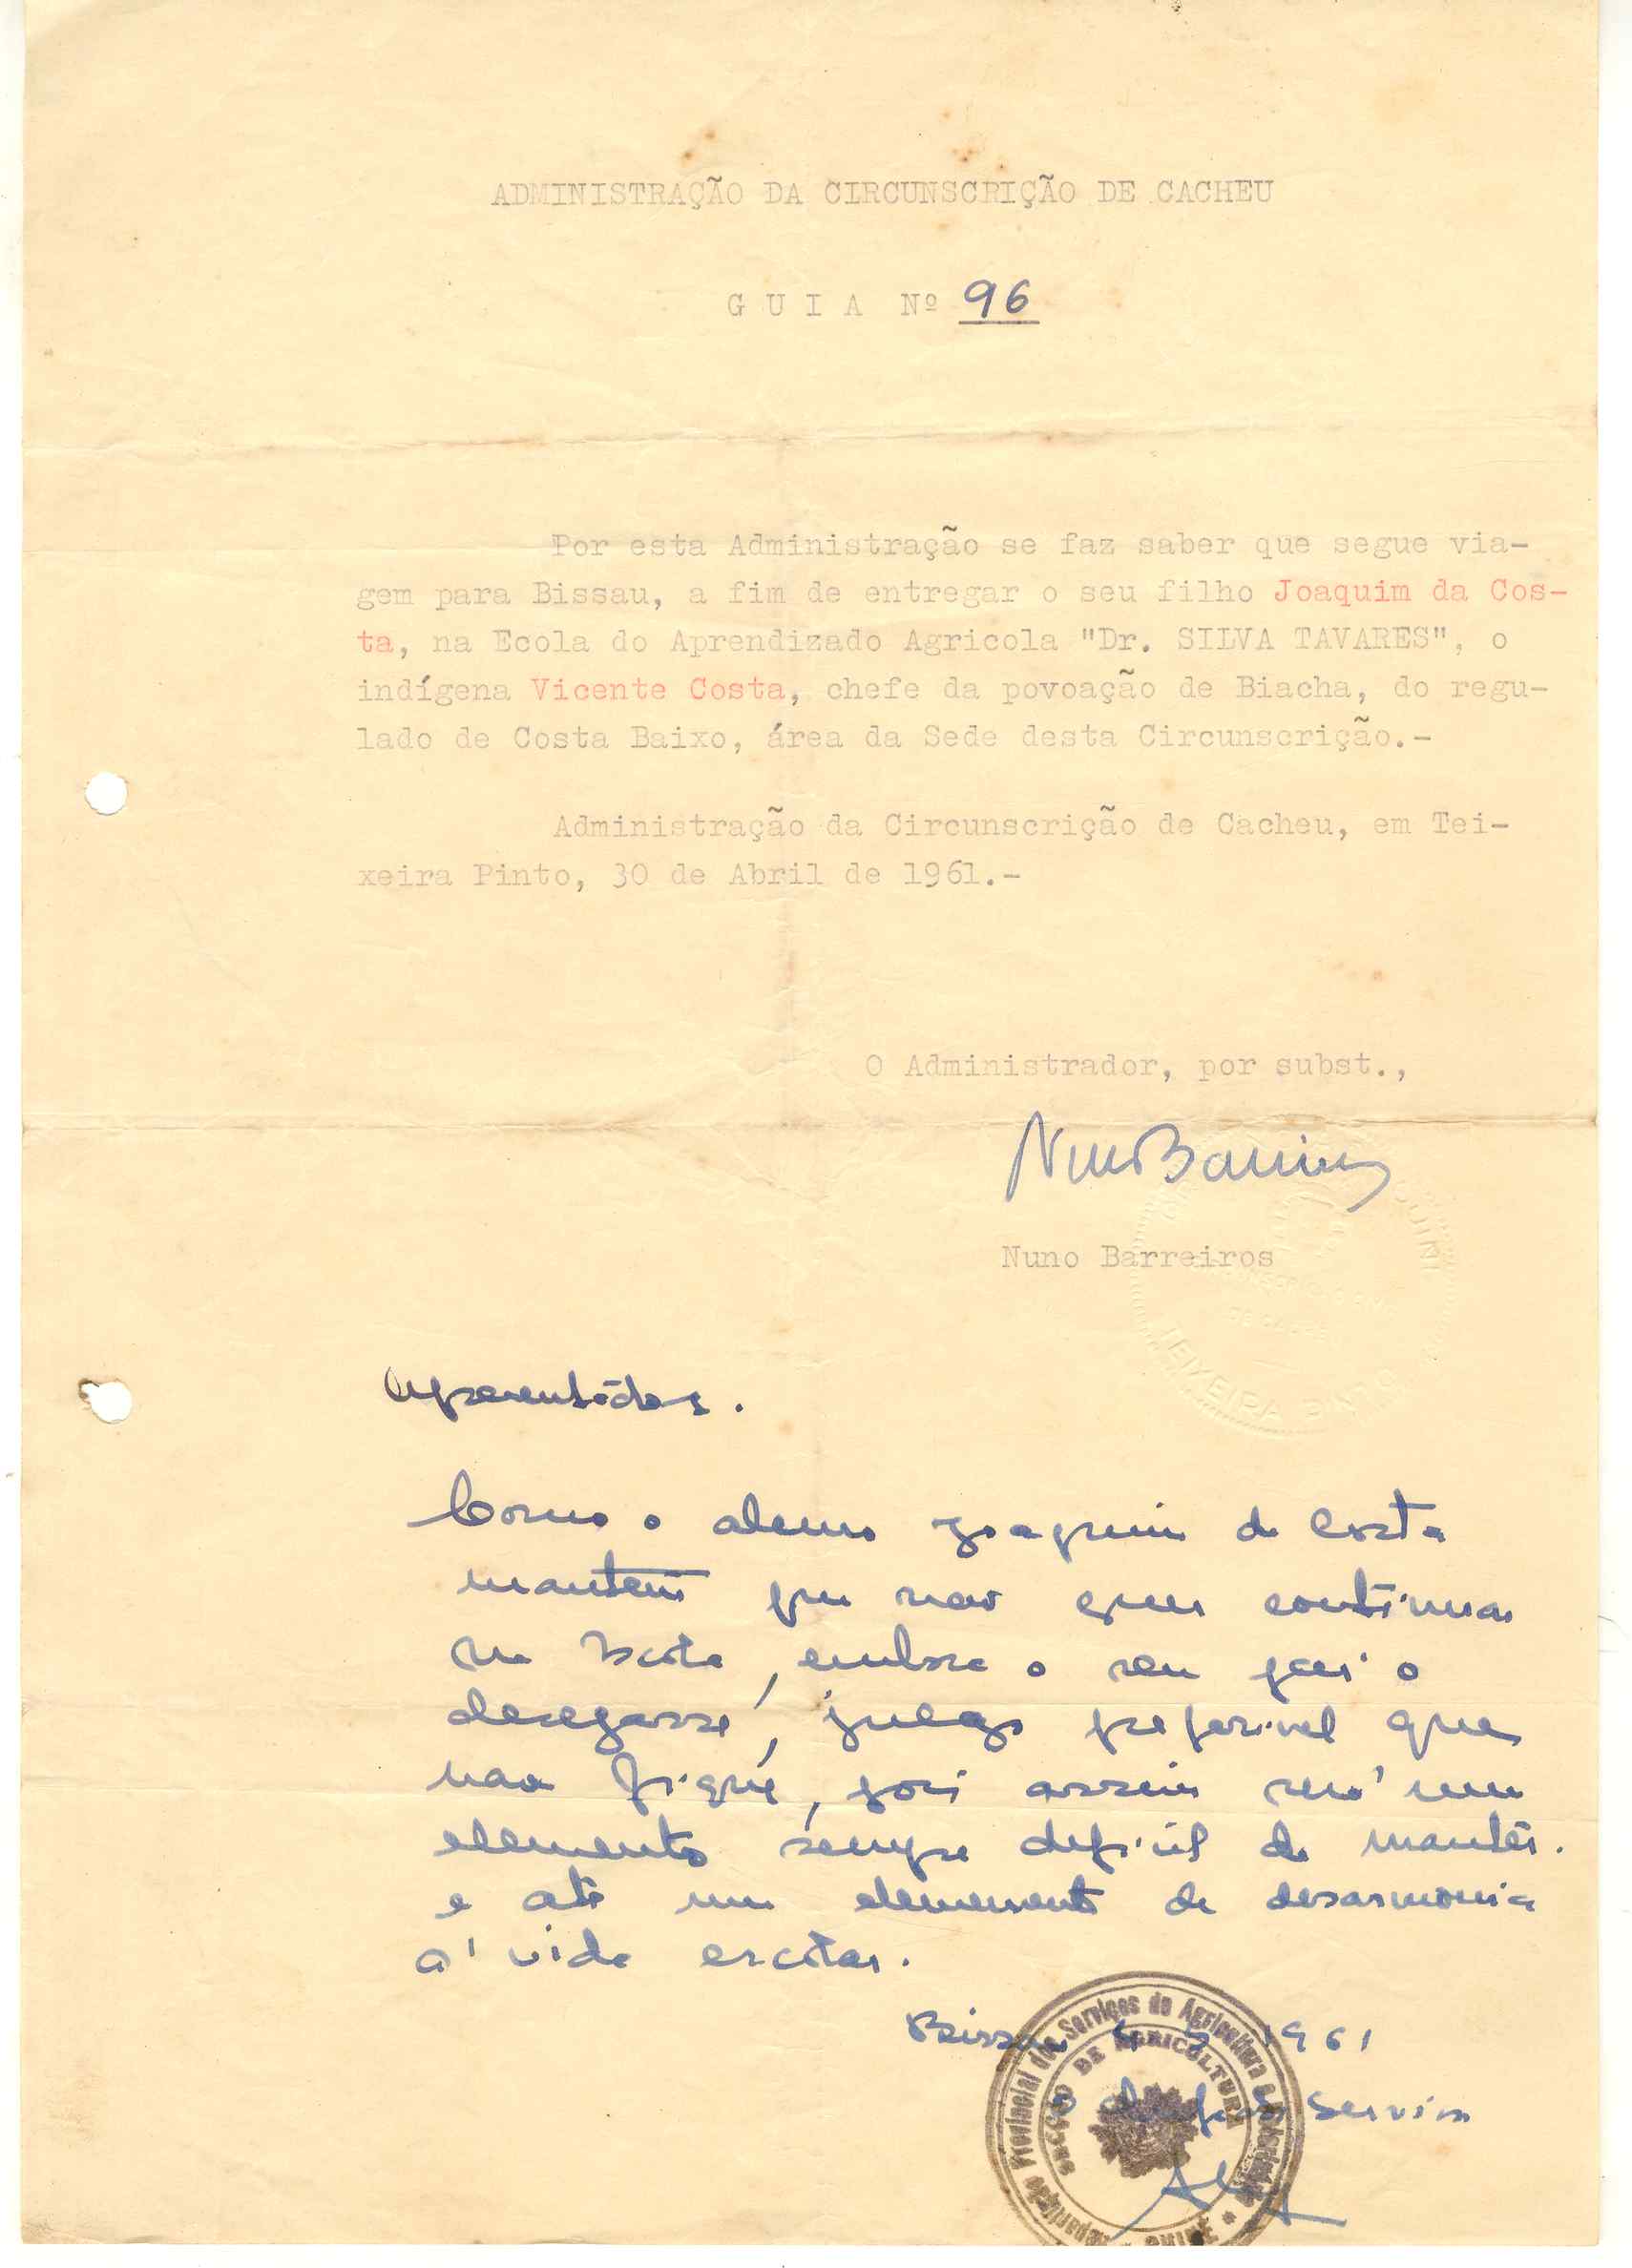 ADMINISTRAÇÃO DA CIRCUNSCRIÇÃO DE CACHEU
GUIA Nº 96
Por esta Administração se faz saber que segue via-
gem para Bissau, a fim de entregar o seu filho Joaquim da Cos-
ta, na Ecola do Aprendizado Agricola "Dr. SILVA TAVARES", o
indígena Vicente Costa, chefe da povoação de Biacha, do regu-
lado de Costa Baixo, área da Sede desta Circunscrição.-
Administração da Circunscrição de Cacheu, em Tei-
xeira Pinto, 30 de Abril de 1961.-
O Administrador, por subst.,
Nuno Barreiros
Nuno Barreiros
TEIXEIRA PINTO
Apresentados.
Como o aluno Joaquim da Costa
mantem que não quer continuar
na Escola, embora o seu pai o
desejasse, julgo preferivel que
não fique, pois assim será um
elemento sempre dificil de manter
e até um elemento de desarmonia
á vida escolar.
Bissau 1961
O Chefe dos Serviços
Repartição Provincial dos Serviços de Agricultura e
SECÇÃO DE AGRICULTURA